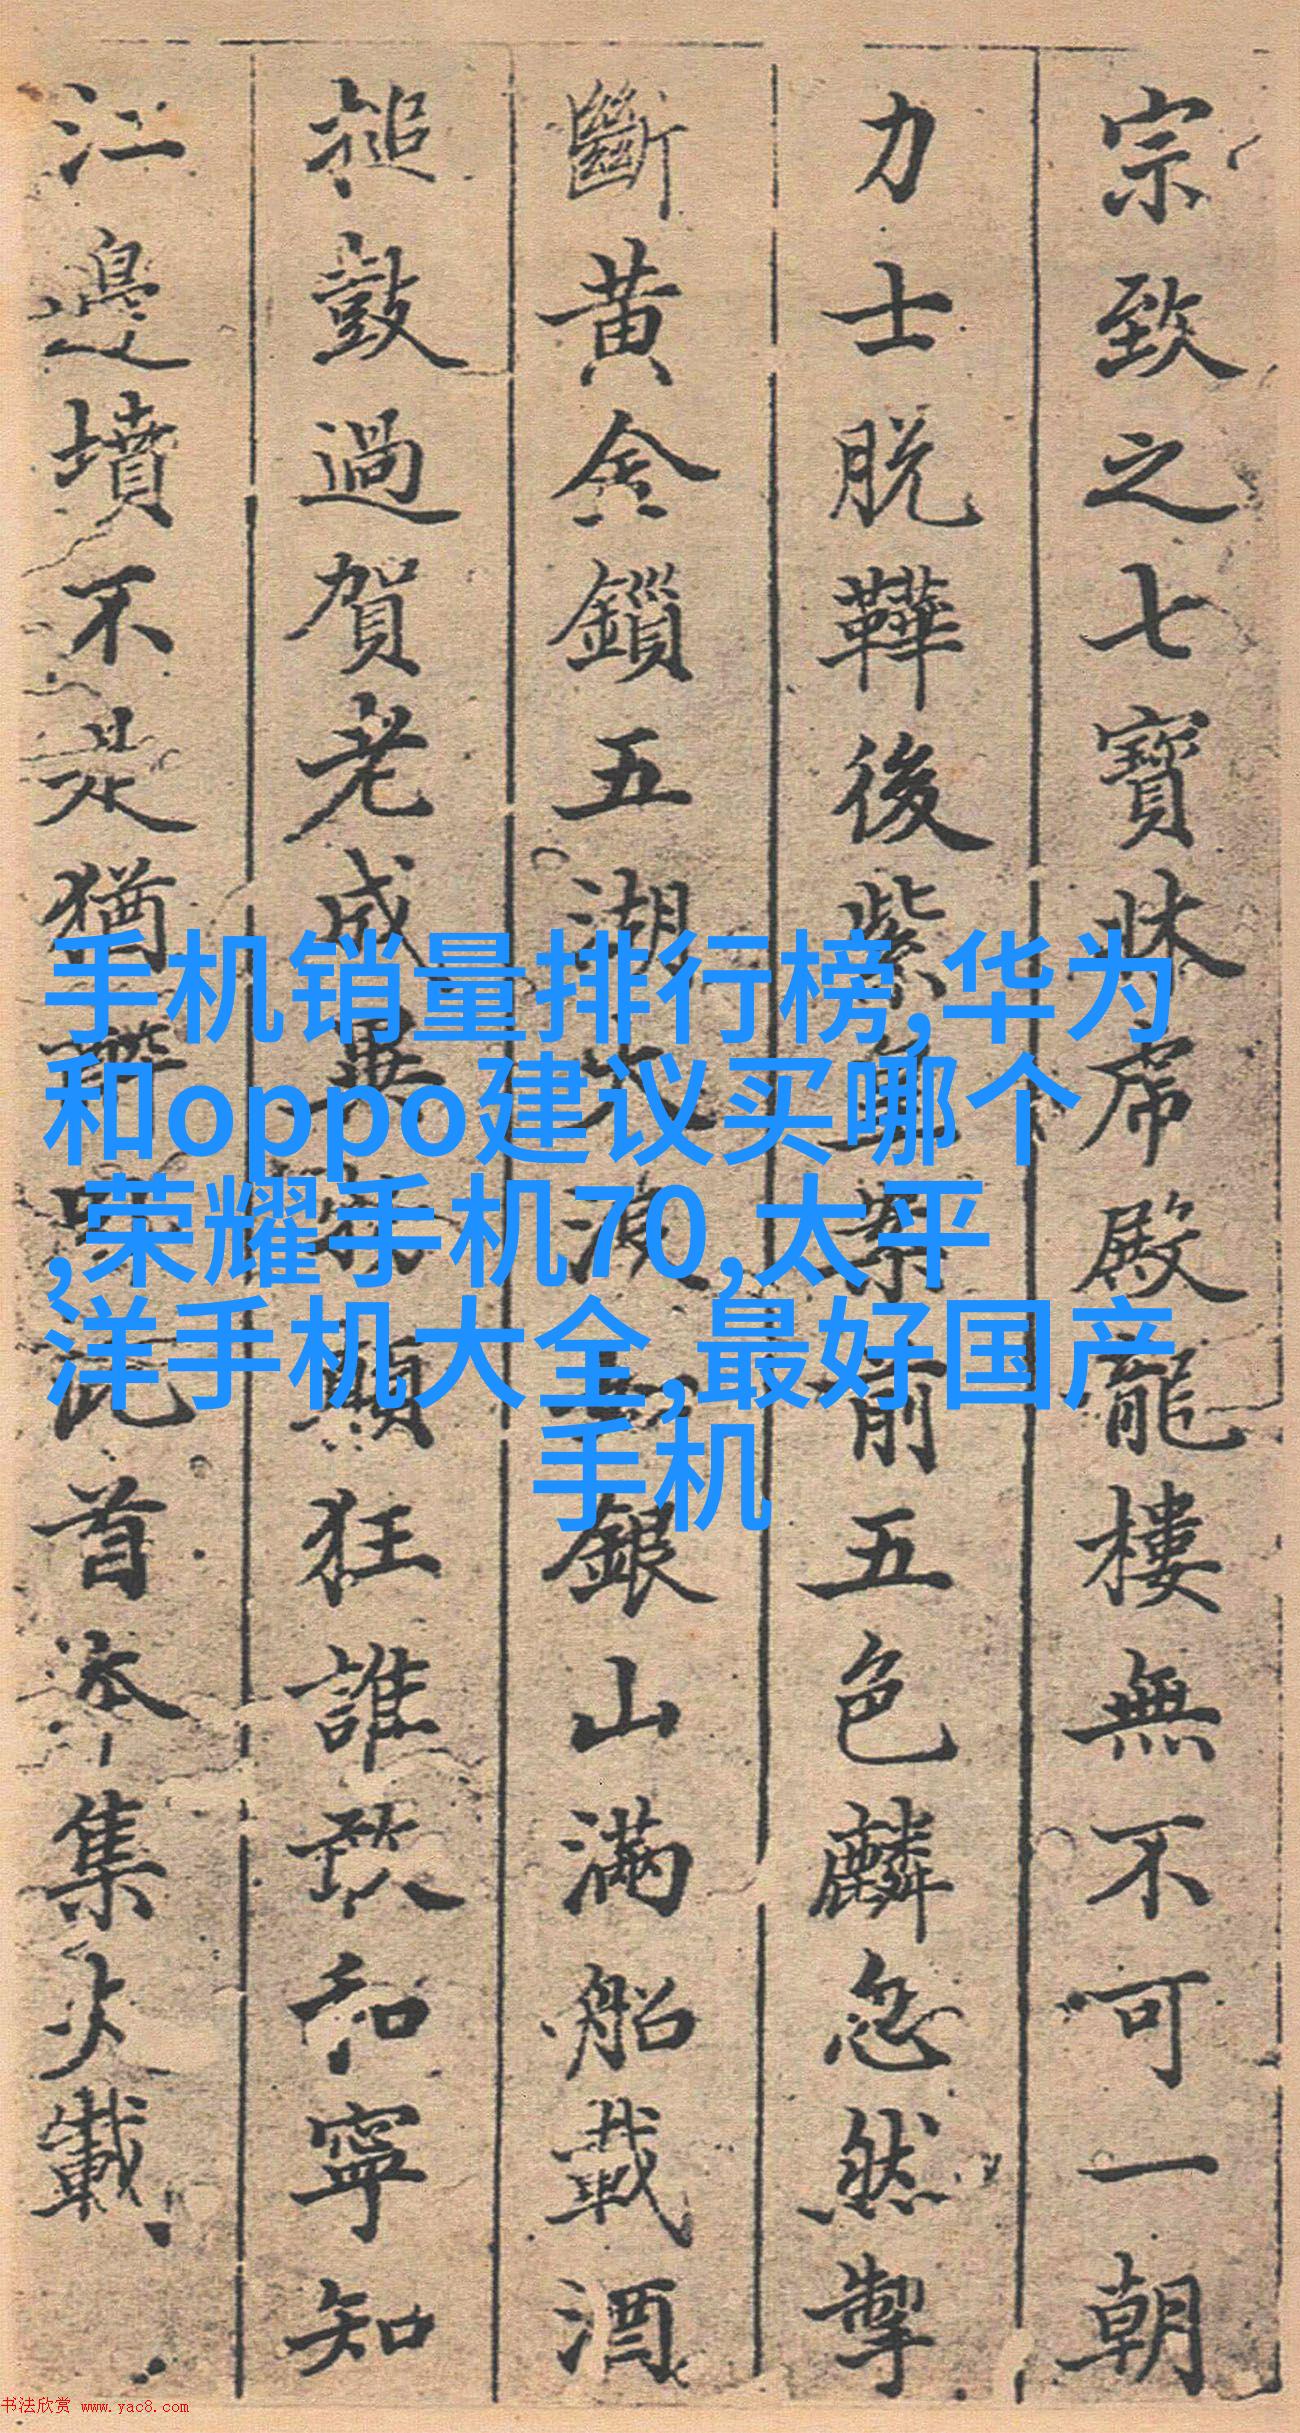 宗致之七寶牀席殿龍樓無不可一朝
力士脱鞾後紫皇案前五色麟忽然掣
斷黄金鎖五湖大浪如銀山滿船載酒
搥鼓過賀老成異物顛狂誰敢和寧知
江邊墳不是猶醉卧此首本集火載
手机销量排行榜,华为
和oppo建议买哪个
,荣耀手机70,太平
洋手机大全,最好国产
手机
书法欣赏 www.yac8.com